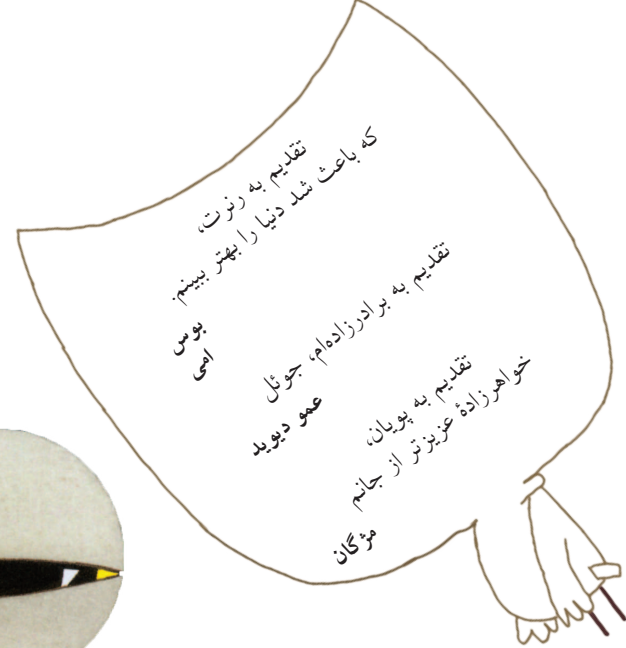 تقدیم به رنرت،
که باعث شد دنیا را بهتر ببینم.
بوس
امی
تقدیم به برادرزاده‌ام، جوئل
عمو دیوید
تقدیم به پویان،
خواهرزادهٔ عزیزتر از جانم
مژگان